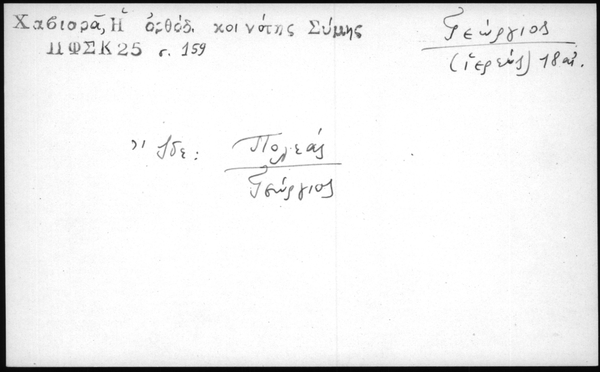 Χαβιαρᾶ, Ἡ ὀρθόδ. κοινότης Σύμης
ΠΦΣΚ 25 σ. 159
Γεώργιος
(ἱερεύς) 18 αἰ.
Ἴδε: Πολεάς
Γεώργιος